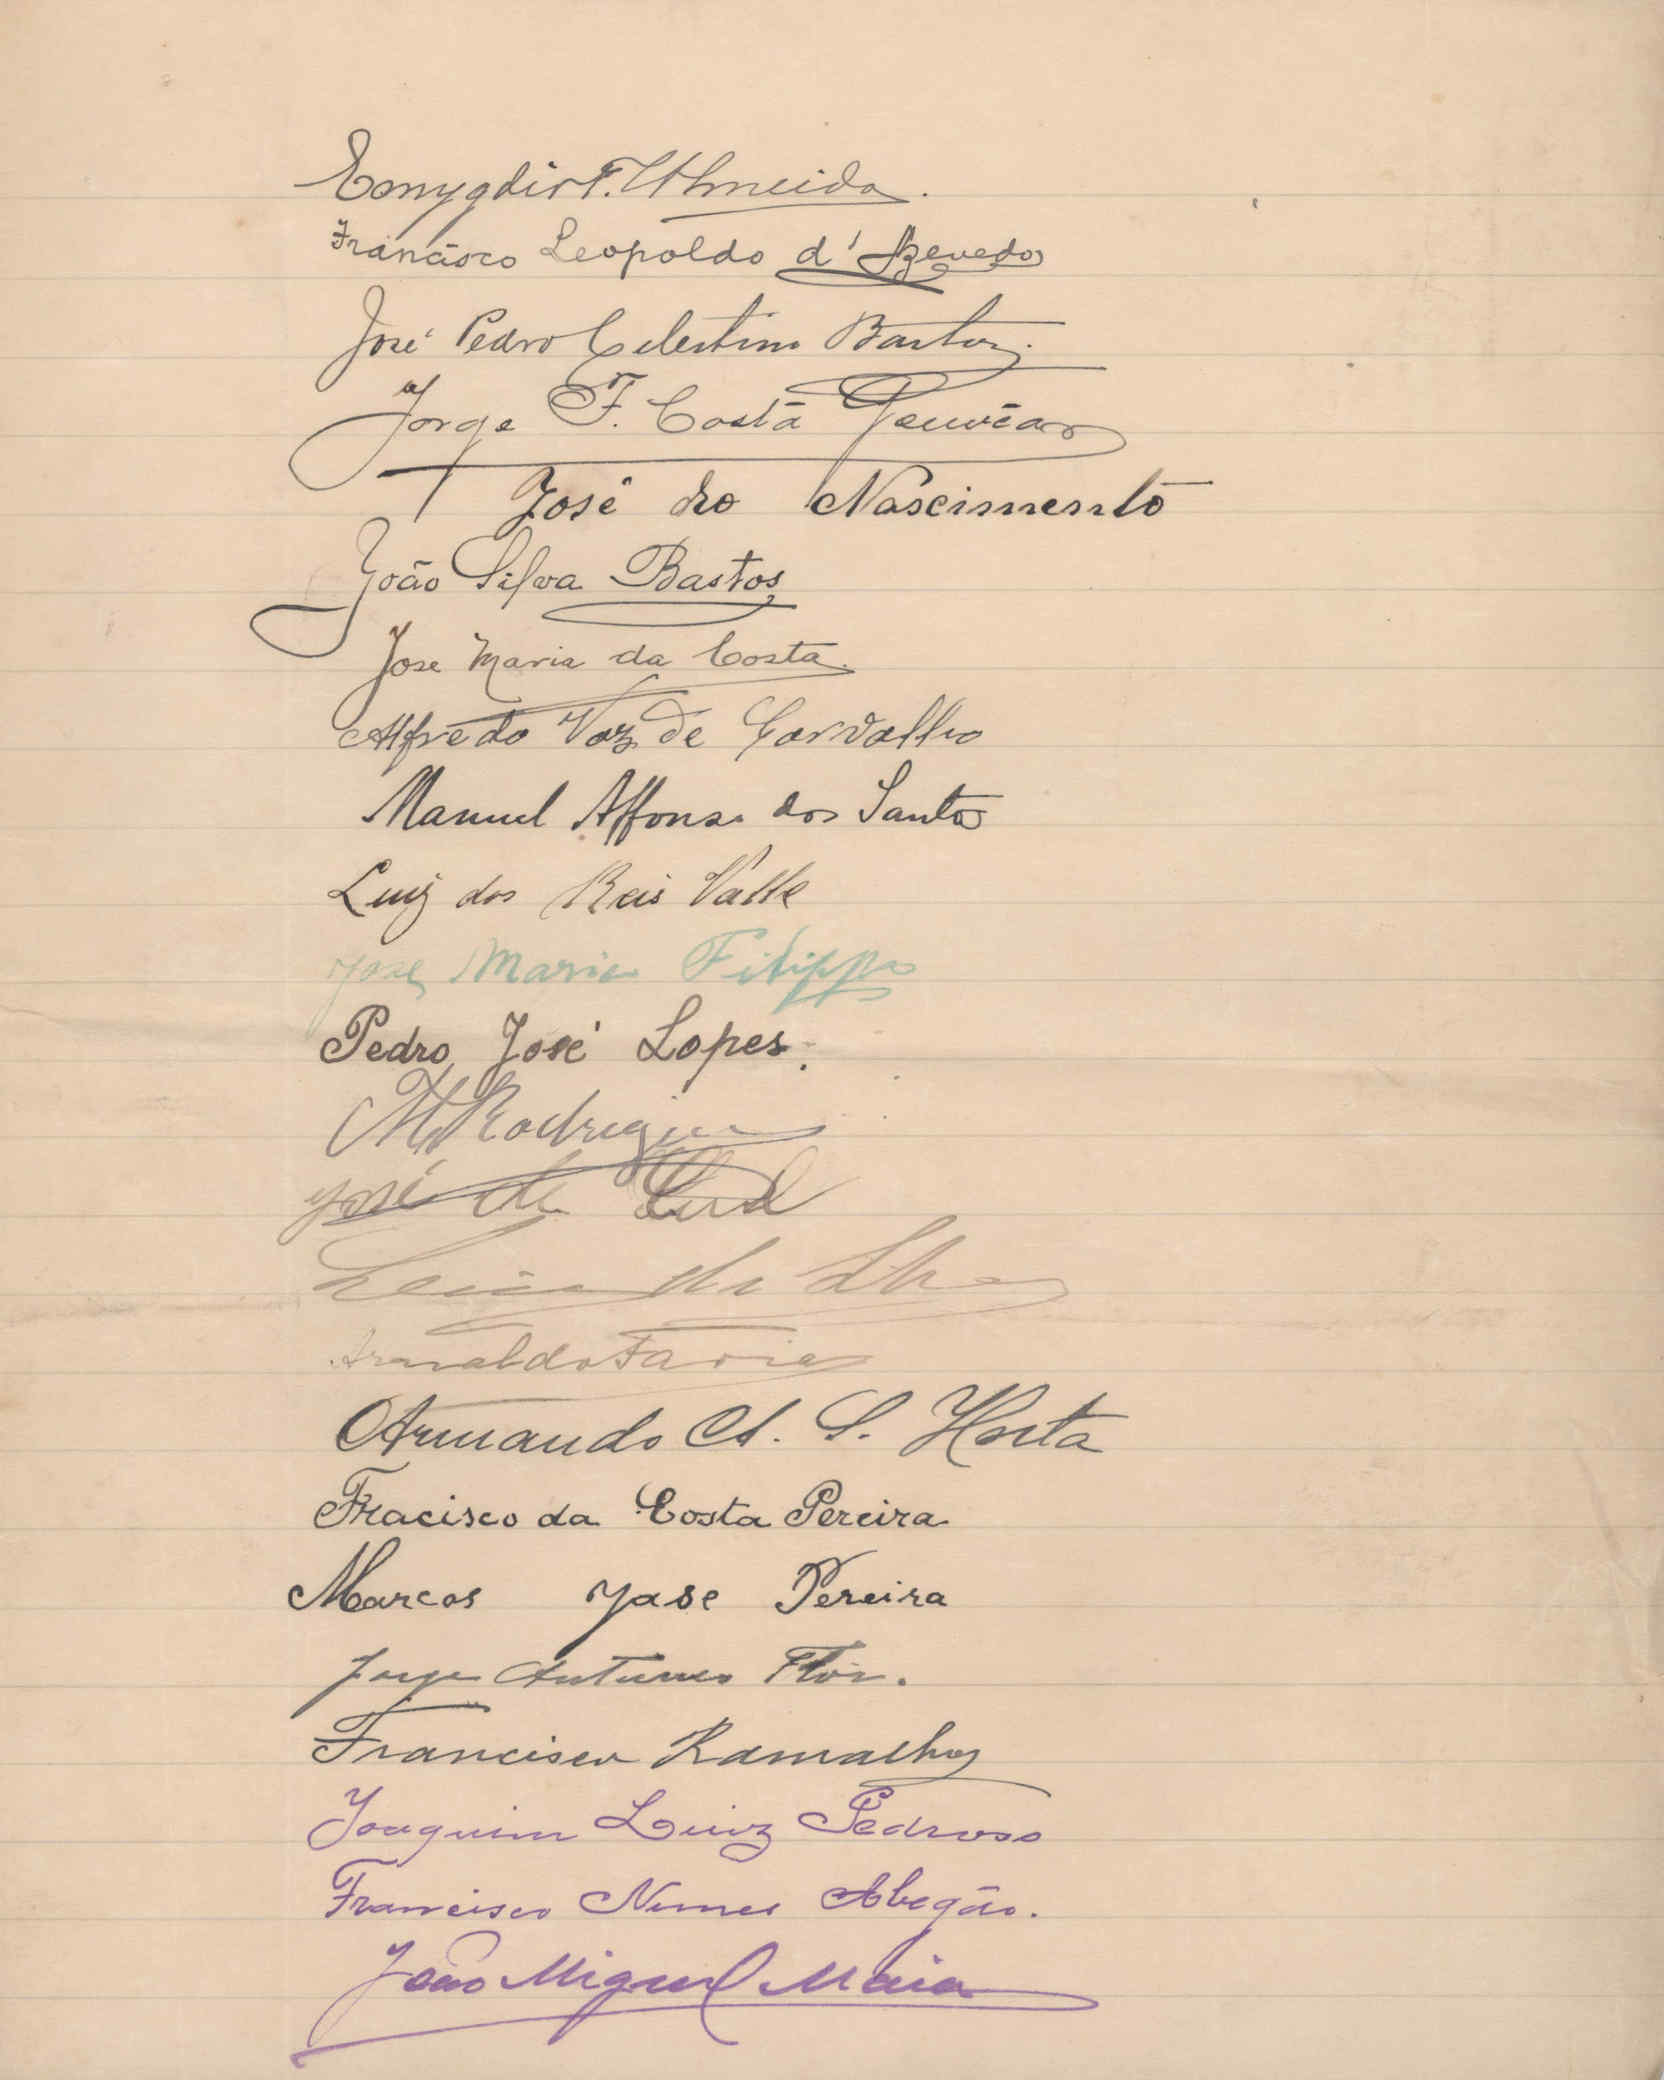 Emygdio F. Almeida.
Francisco Leopoldo d'Azevedo
José Pedro Celestino Bastos.
Jorge F. Costa Gouvêa
José do Nascimento
João Silva Bastos
Jose Maria da Costa.
Alfredo Vaz de Carvalho
Manuel Affonso dos Santos
Luiz dos Reis Valle
José Maria Filippe
Pedro José Lopes.
M Rodrigues
José da
da
Arnaldo Faria
Armando A. S. Horta
Fracisco da Costa Pereira
Marcos Jose Pereira
Jorge Antunes Flôr.
Francisco Ramalho
Joaquim Luiz Pedroso
Francisco Nunes Abegão.
João Miguel Maia